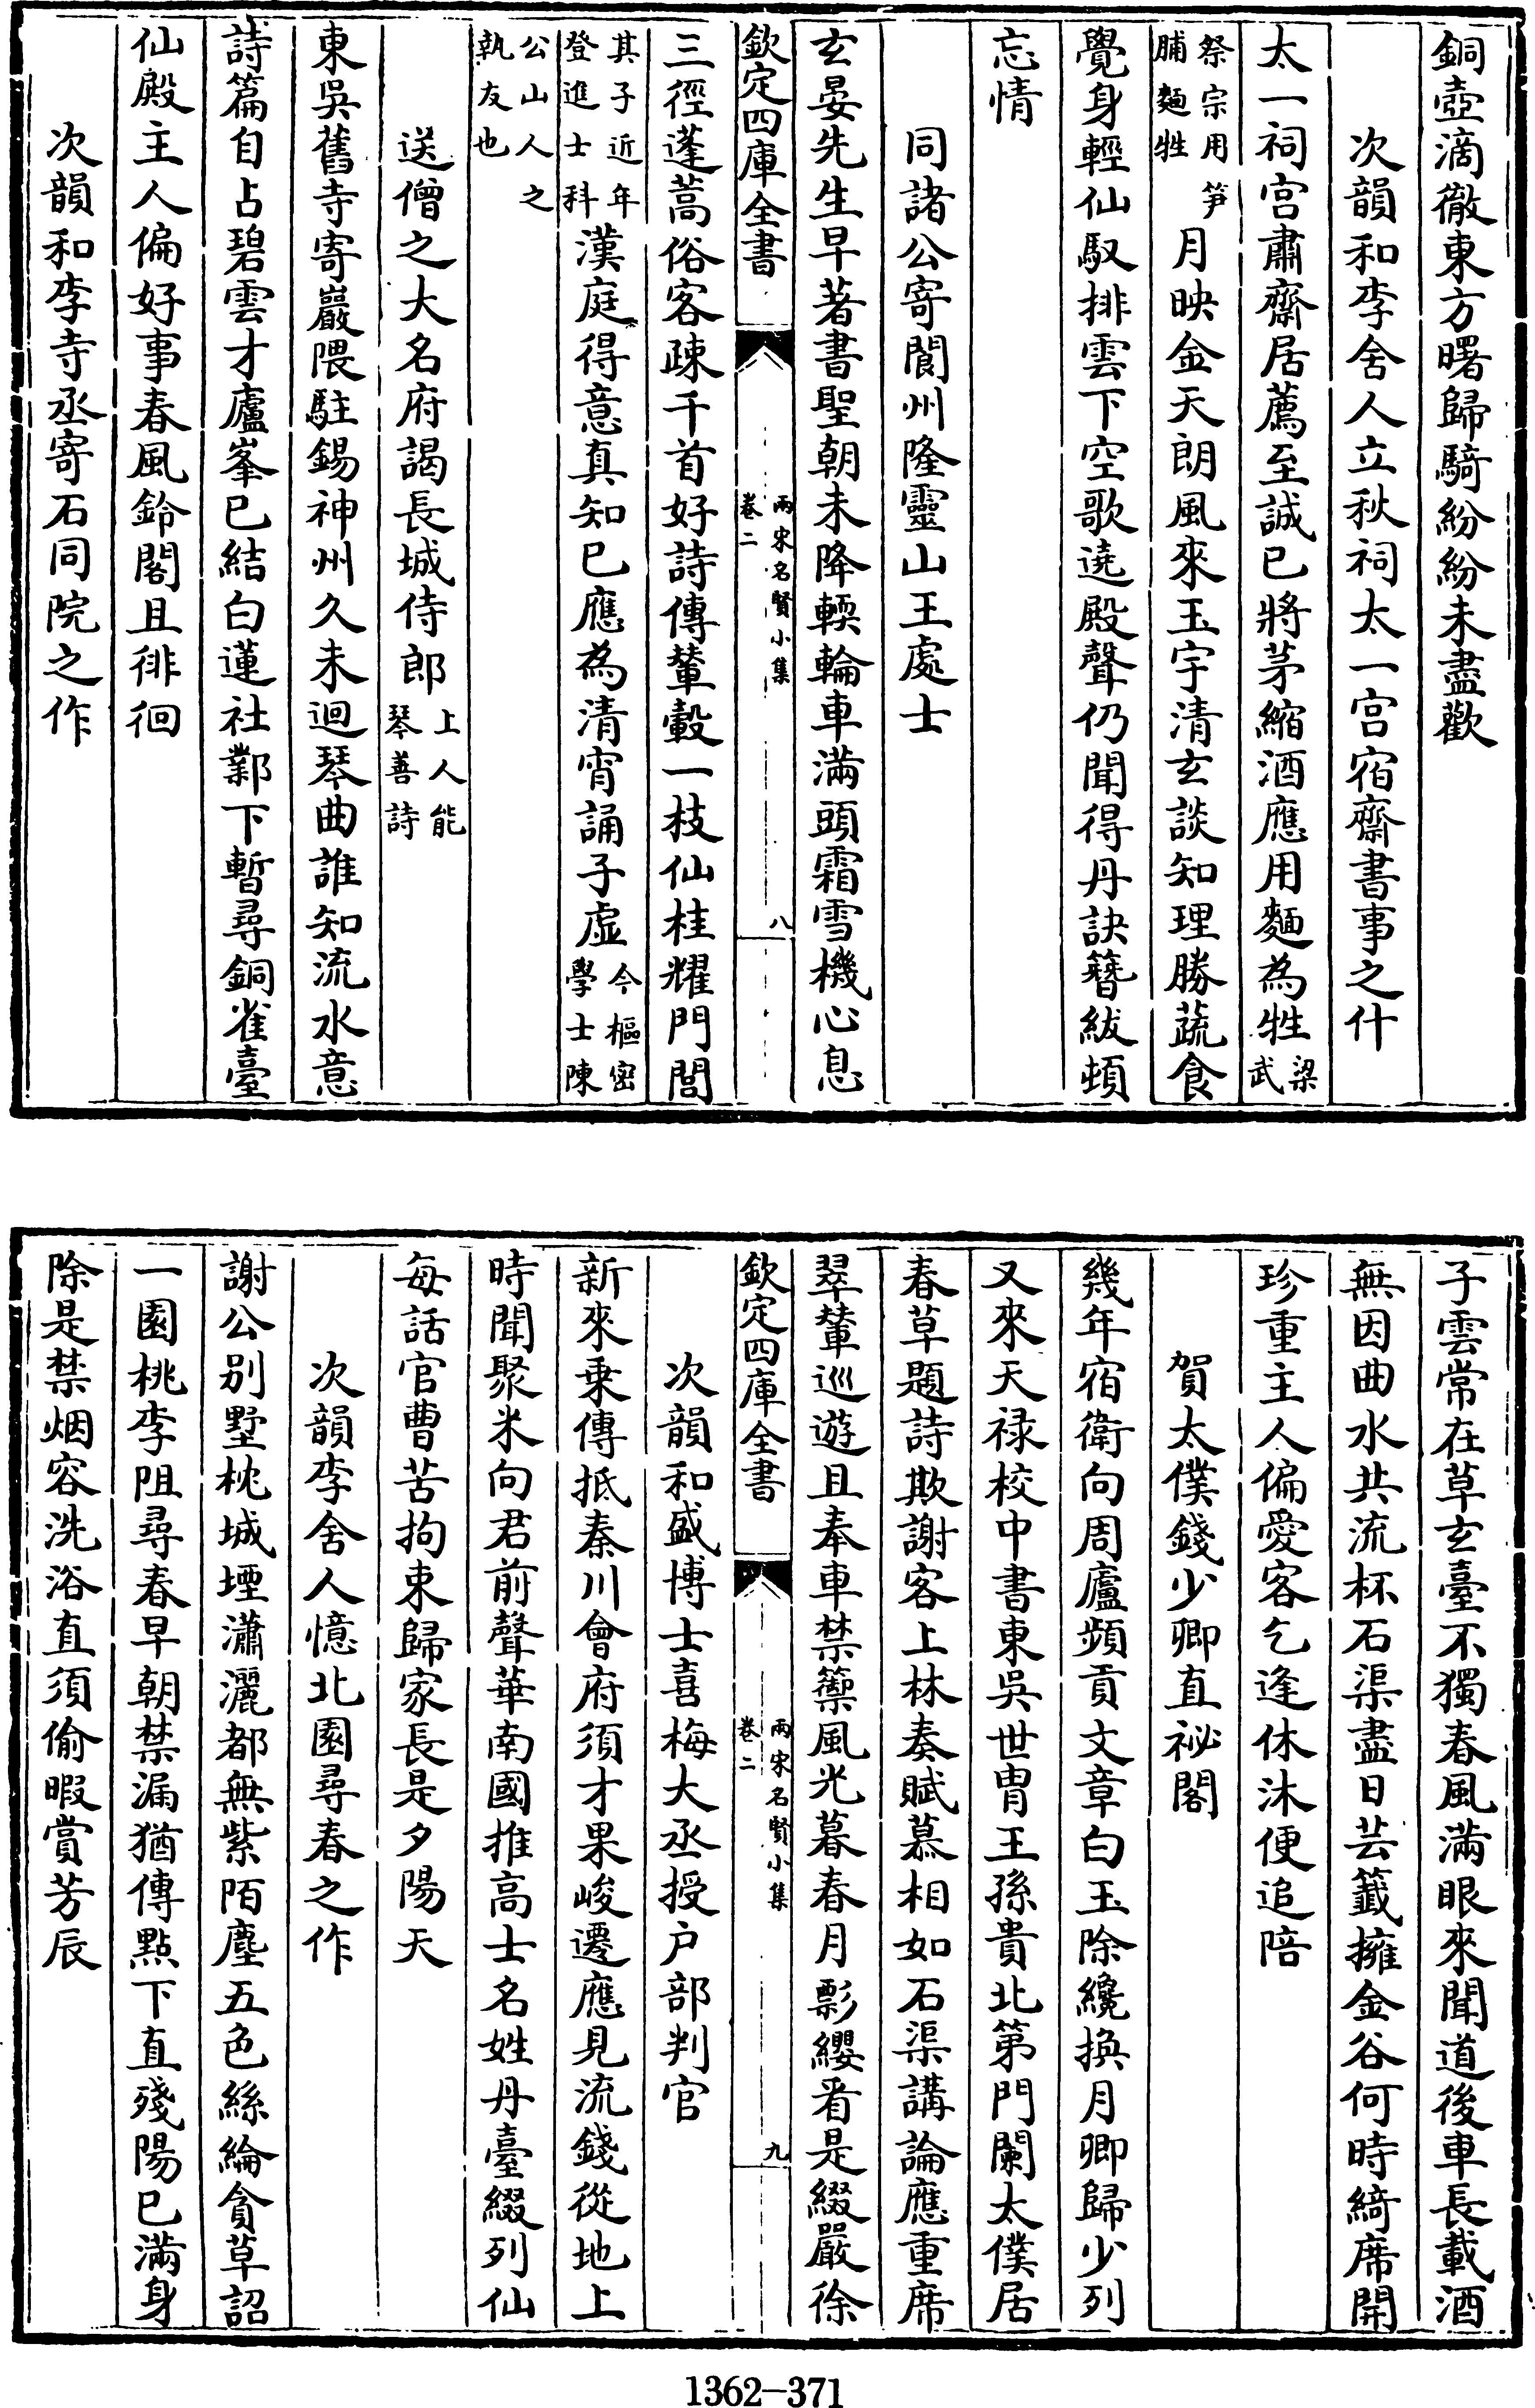 銅壺滴徹東方曙歸騎紛紛未盡歡
次韻和李舍人立秋祠太一宮宿齋書事之什
太一祠宮肅齋居薦至誠已將茅縮酒應用麵為牲梁武
祭宗用笋脯麵牲月映金天朗風來玉宇清玄談知理勝蔬食
覺身輕仙馭排雲下空歌遶殿聲仍聞得丹訣簪紱頓
忘情
同諸公寄閬州隆靈山王處士
玄晏先生早著書聖朝未降輭輪車滿頭霜雪機心息
欽定四庫全書
兩宋名賢小集
卷二
八
三徑蓬蒿俗客疎千首好詩傳輦轂一枝仙桂耀門閭
其子近年登進士科漢庭得意真知已應為清宵誦子虛今樞密學士陳
公山人之執友也
送僧之大名府謁長城侍郎上人能琴善詩
東吳舊寺寄巖隈駐錫神州久未迴琴曲誰知流水意
詩篇自占碧雲才廬峯已結白蓮社鄴下暫尋銅雀臺
仙殿主人偏好事春風鈴閣且徘徊
次韻和李寺丞寄石同院之作
子雲常在草玄臺不獨春風滿眼來聞道後車長載酒
無因曲水共流杯石渠盡日芸籤擁金谷何時綺席開
珍重主人偏愛客乞逢休沐便追陪
賀太僕錢少卿直祕閣
幾年宿衛向周廬頻貢文章白玉除纔換月卿歸少列
又來天禄校中書東吳世胄王孫貴北第門闌太僕居
春草題詩欺謝客上林奏賦慕相如石渠講論應重席
翠輦巡遊且奉車禁籞風光暮春月影纓看是綴嚴徐
欽定四庫全書
兩宋名賢小集
卷二
九
次韻和盛博士喜梅大丞授户部判官
新來乗傳抵秦川會府須才果峻遷應見流錢從地上
時聞聚米向君前聲華南國推高士名姓丹臺綴列仙
每話官曹苦拘束歸家長是夕陽天
次韻李舍人憶北園尋春之作
謝公别墅枕城堙瀟灑都無紫陌塵五色絲綸貪草詔
一園桃李阻尋春早朝禁漏猶傳點下直殘陽已滿身
除是禁烟容洗浴直須偷暇賞芳辰
1362-371